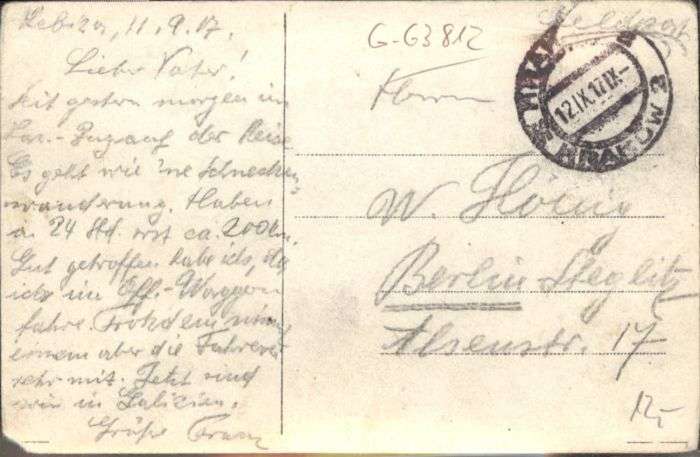 Lebiza, 11.9.17.
Lieber Vater!
Seit gestern morgen im
Laz.-Zug auf der Reise
Es geht wie 'ne Schnecken
wanderung. Haben
in 24 Std. erst ca. 200 km.
Gut getroffen hab ich, da
ich im Off.-Waggon
fahre. Trotzdem nimmt
einem aber die Fahrerei
sehr mit. Jetzt sind
wir in Galizien.
Grüße Franz
G-G3812
Feldpost
KRAKÓW 2
12.IX.17.IX-
Herrn
W. Hönig
Berlin-Steglitz
Alsenstr. 17
12,-